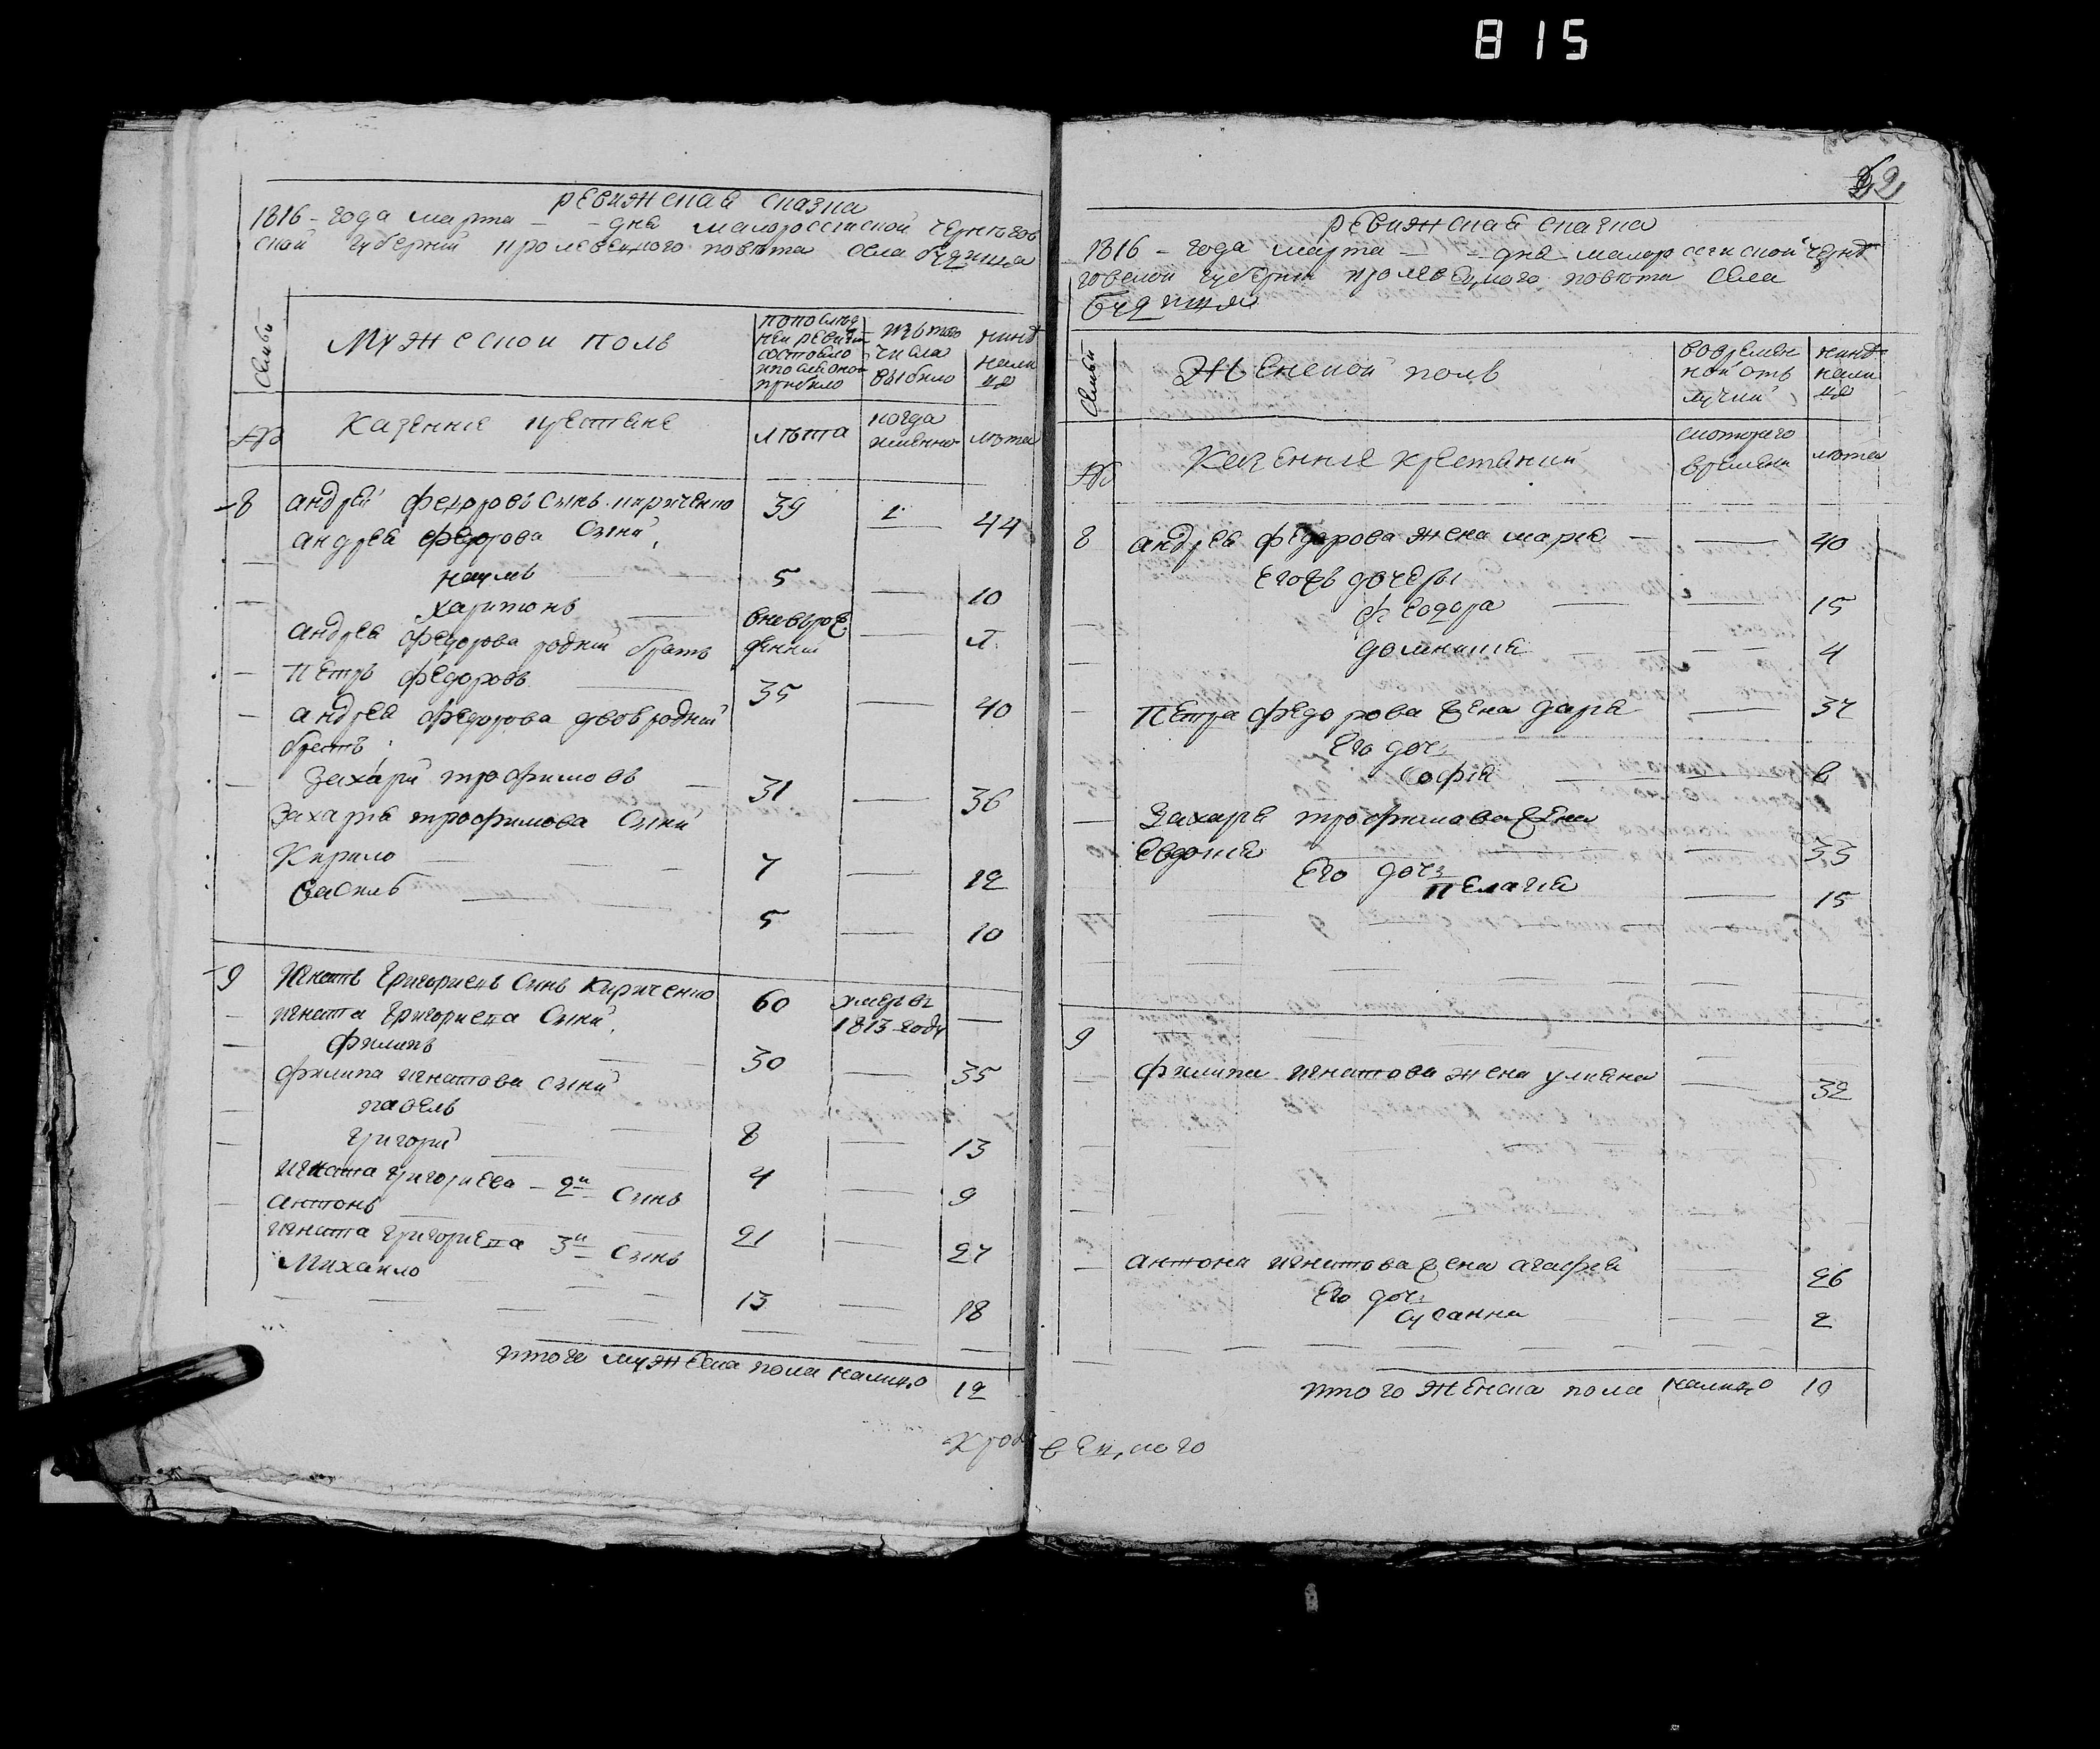 815
ревижская сказка
1816 - года марта - - дня малоросеиской чернъгов
ской губерний кролевецкого повъта села будища
Семьи
Мужескои полъ
попослъд
ней ревизи
состояло
ипослъ оной
прибило
изътого
числа
выбило
нинъ
нали
цо
№
казенние крестяне
лъта
когда
именно
лъта
8 андрей федоровъ синъ кириченко 39 44
андрея федорова сини
наумъ 5 10
харитонъ вневъроя 5
андрея федорова родний братъ жении
Петръ федоровъ 35 40
андрея федорова двоеродний
братъ
Захарй трофимовъ 31 36
Захария трофимова сини
Кирило 7 12
василь 5 10
9 Игнатъ григориевъ синъ кириченко 60 умеръ въ
1813 году
игната григориева сини
филипъ 30 35
филипа игнатова сини
павелъ 8 13
григорий 4 9
игната григориева - 2й синъ
антонъ 21 27
игната григориева 3й синъ
Михаило 13 18
итого мужеска пола налицо 12
Кроле
вецкого
22
ревижская сказка
1816 - года марта - - дня малоросеиской чернъ
говской губернии кролевецкого повъта села
будища
Семьи
Женской полъ
вовремен
ной отъ
лучки
нинъ
нали
цо
№
Казенние крестянки
скоторого
времени
лъта
8 андрея федорова жена маря 40
егожъ дочери
феодора 15
домникия 4
Петра федорова жена даря 37
его доч:
Софія 6
Захаря трофимова жена
Евдокия 33
его доч:
пелагия 15
9
филипа игнатова жена уляна 32
антона игнатова жена агафия 26
его доч:
сусанна 2
итого женска пола налицо 10